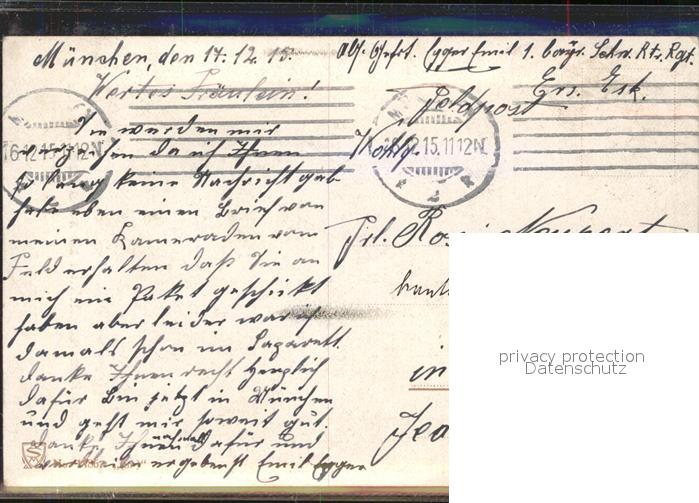 München, den 17.12.15.
Abs. Gefrt. Egger Emil 1. bayr. Schw. Rtr. Rgt.
Ers. Esk.
Wertes Fräulein!
Feldpost
Sie werden mir
verzeihen da ich Ihnen
16.12.15.11-12N
12.15.11-12N
so lang keine Nachricht gab
habe eben einen Brief von
meinen Kameraden vom
Frl. Rosi
Feld erhalten daß Sie an
mich ein Paket geschickt
haben aber leider war ich
damals schon im Lazarett.
danke Ihnen recht herzlich
in
dafür bin jetzt in München
und geht mir soweit gut.
danke Ihnen nochmals dafür und
verbleibe ergebenst Emil Egger
privacy protection
Datenschutz